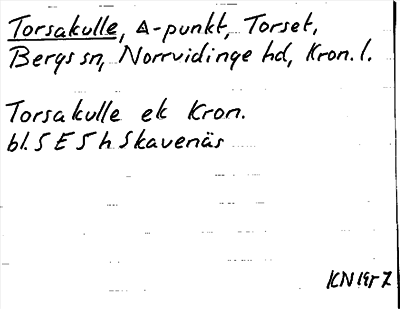 Torsakulle, △-punkt, Torset,
Bergs sn, Norrvidinge hd, Kron. l.
Torsakulle ek Kron.
bl. 5 E 5 h Skavenäs